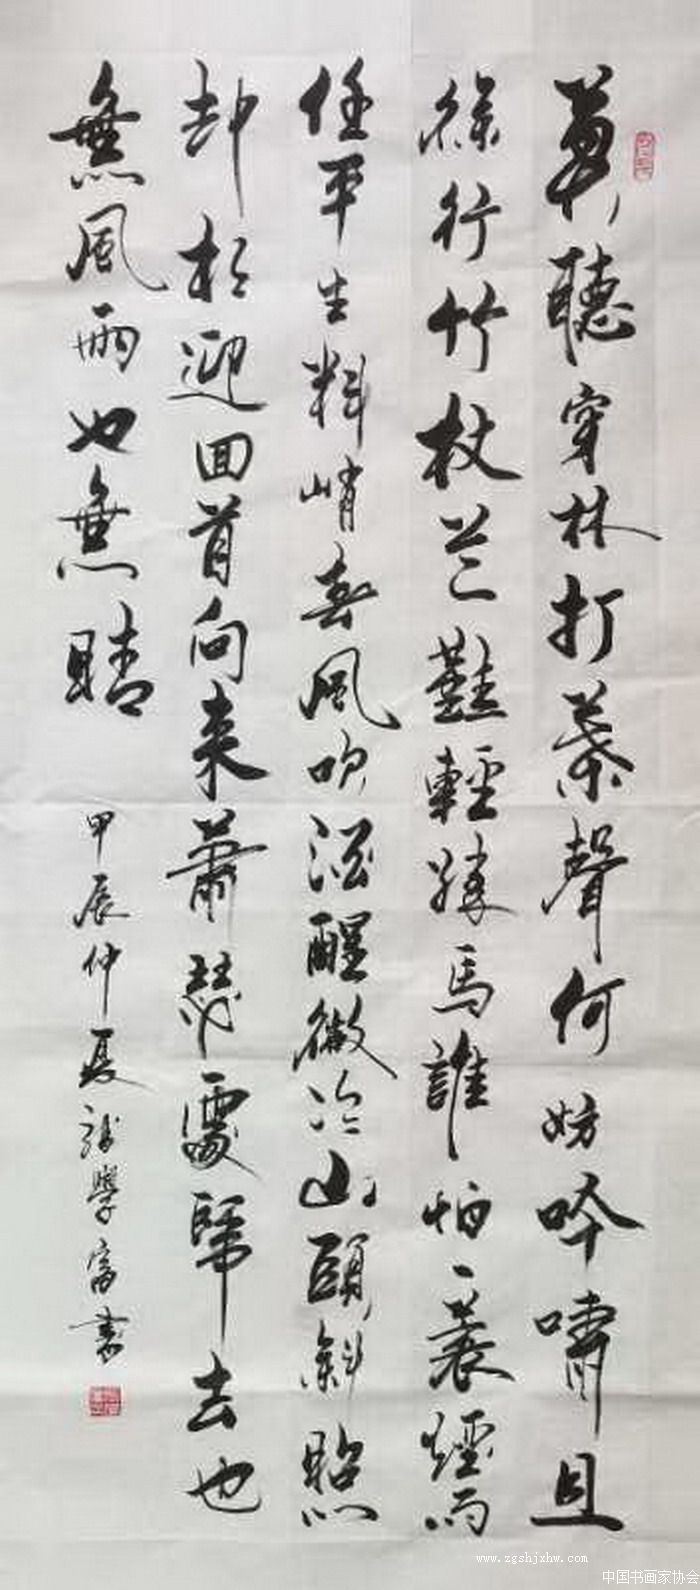 莫聽穿林打葉聲何妨吟嘯且
徐行竹杖芒鞋輕勝馬誰怕一蓑煙雨
任平生料峭春風吹酒醒微冷山頭斜照
却相迎回首向来蕭瑟處歸去也
無風雨也無晴
甲辰仲夏學富書
www.zgshjxhw.com
中国书画家协会